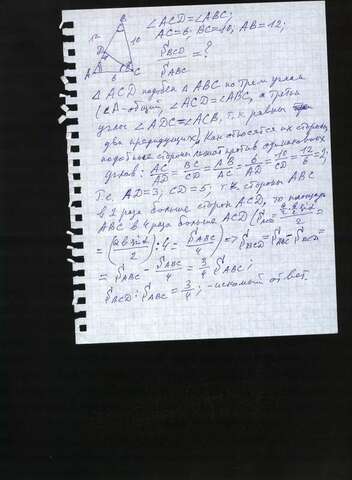 B
12
10
D
A
6
C
∠ACD=∠ABC;
AC=6; BC=10; AB=12;
S BCD / S ABC = ?
Δ ACD подобен Δ ABC по трем углам
(∠A-общий, ∠ACD=∠ABC, а третьи
углы ∠ADC=∠ACB, т.к. равны
два предыдущих). Как относятся их стороны,
подобные стороны лежат против одинаковых
углов: AC/AD = BC/CD = AB/AC = 6/AD = 10/CD = 12/6 = 2;
Т.е. AD=3; CD=5; т.к. стороны ABC
в 2 раза больше сторон ACD, то площадь
ABC в 4 раза больше ACD (S ACD =
= S ABC / 4) => S BCD = S ABC - S ACD =
= S ABC - S ABC / 4 = 3/4 S ABC;
S ACD : S ABC = 3/4; - искомый ответ.